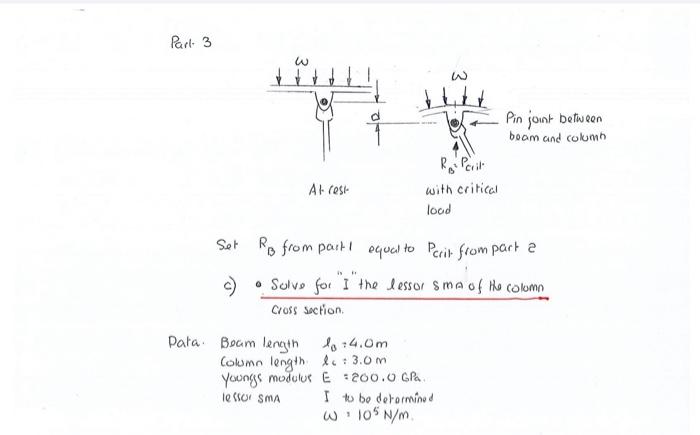 Part 3
ω
ω
d
Pin joint between
beam and column
R_B = P_crit
At rest
with critical
load
Set R_B from part 1 equal to P_crit from part 2
c) • Solve for "I" the lessor sma of the column
cross section.
Data. Beam length l_B = 4.0m
Column length l_c = 3.0 m
Youngs modulus E = 200.0 GPa.
lessor SMA I to be determined
ω = 10^5 N/m.